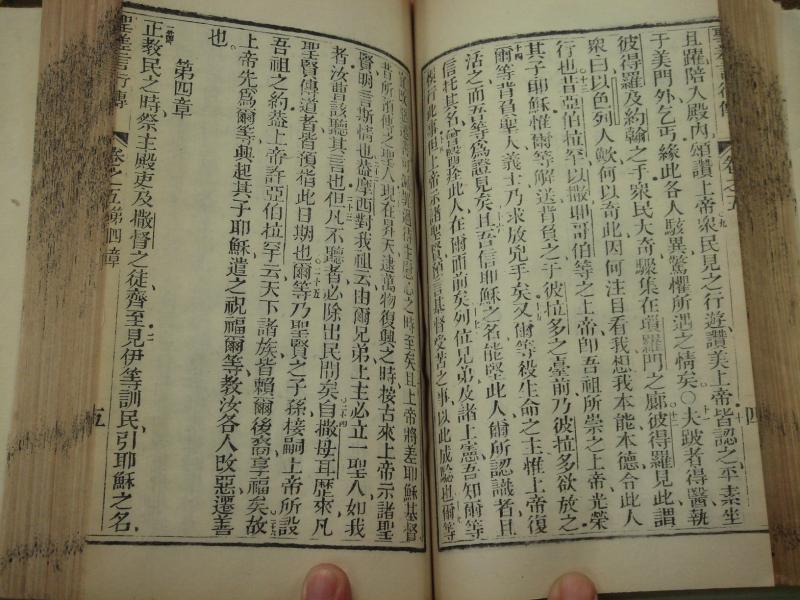 卷之五
四
且躍陪入殿內頌讚上帝衆民見之行遊讚美上帝皆認之平素坐
于美門外乞丐緣此各人駭異驚懼所遇之情矣○夫跛者得醫執
彼得羅及約翰之手衆民大奇驟集在瑣羅門之廊彼得羅見此謂
衆曰以色列人歟何以奇此因何注目看我想我本能本德令此人
行也昔亞伯拉罕以撒耶哥伯等之上帝卽吾祖所崇之上帝光榮
其子耶穌惟爾等解送背負之于彼拉多之臺前乃彼拉多欲放之
爾等背負聖人義士乃求放兇手矣又爾等殺生命之主惟上帝復
活之而吾等爲證見矣且吾信耶穌之名能堅此人爾所認識者且
信托其名會醫痊此人在爾面前矣列位兄弟及諸上憲吾知爾等
此事但上帝示諸聖賢預言基督受苦之事以此成驗也爾等
之時至矣且上帝將差耶穌基督
昔所預傳之聖人現在昇天逮萬物復興之時接古來上帝示諸聖
賢明言斯情也蓋摩西對我祖云由爾兄弟上主必立一聖人如我
者汝曹該聽其言也但凡不聽者必除出民間矣自撒母耳歷來凡
聖賢傳道者皆預指此日期也爾等乃聖賢之子孫接嗣上帝所設
吾祖之約蓋上帝許亞伯拉罕云天下諸族皆賴爾後裔享福矣故
上帝先爲爾等興起其子耶穌遣之祝福爾等教汝各人改惡遷善
也
第四章
正教民之時祭主殿吏及撒督之徒齊至見伊等訓民引耶穌之名
聖差言行傳
卷之五第四章
五